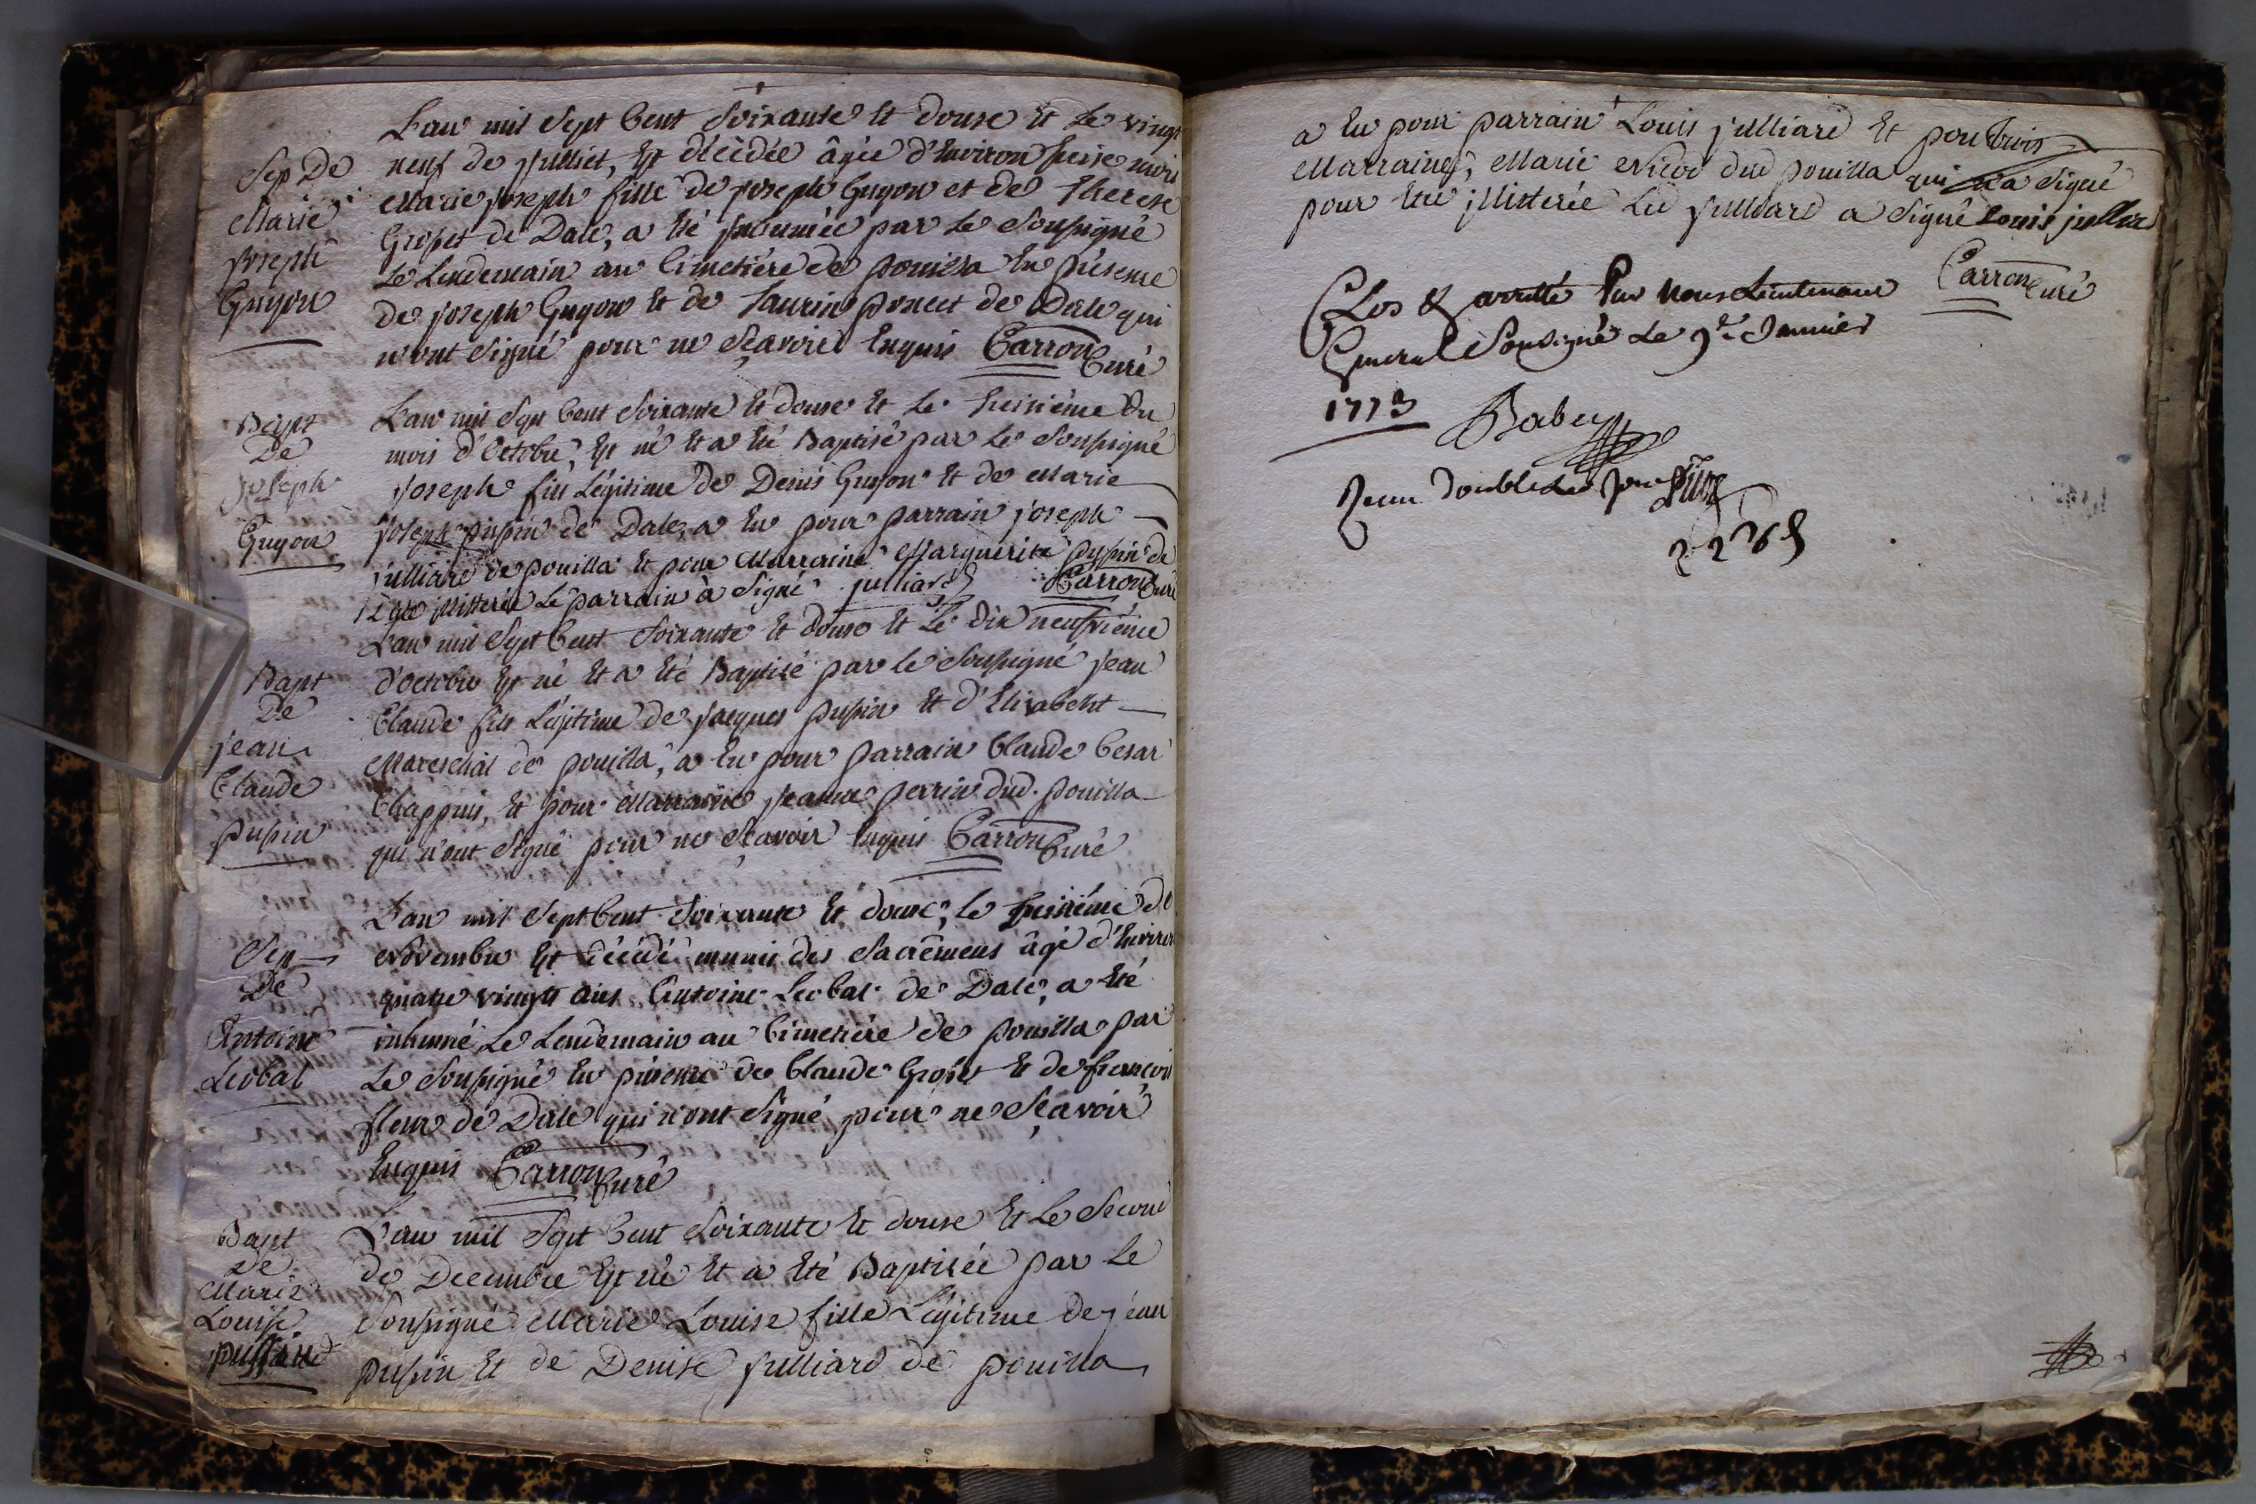 L'an mil Sept Cent Soixante Et douse Et Le vingt
Sep De
neuf de Julliet, Est décédée âgée d'Environ seise mois
Marie
Marie joseph fille de joseph Guyon et de Therese
joseph
Groset de Dale, a été inhumée par Le Soussigné
Guyon
Le Lendemain au Cimetière de pouilla En présence
de joseph Guyon Et de Laurin poncet de Dale qui
n'ont Signé pour ne Sçavoir Enquis Carron Curé
Bapt
De
Joseph
Guyon
L'an mil Sept Cent Soixante Et douse Et Le huisième du
mois d'Octobre, Est né Et a Eté Baptisé par Le Soussigné
joseph fils Légitime de Denis Guyon Et de Marie
joseph pussin de Dale, a Eu pour parrain joseph
julliard de pouilla Et pour Marraine Marguerite pussin de
illitterée Le parrain à Signé julliard Carron Curé
L'an mil Sept Cent Soixante Et douse Et Le Dix neufvième
Bapt
De
jean
Claude
pussin
d'octobre Est né Et a Eté Baptisé par le Soussigné jean
Claude fils Légitime de jacques pussin Et d'Elisabeht
Mareschal de pouilla, a Eu pour parrain Claude Cesar
Chappuis, Et pour Marraine jeanne perrin dud. pouilla
qui n'ont Signé pour ne Sçavoir Enquis Carron Curé
L'an mil Sept Cent Soixante Et douse, Le huisième de
Sep
De
Antoine
Lcobal
Novembre Est décédé munie des Sacrêmens âgé d'Environ
quatre vingts ans Antoine Lcobal de Dale, a Eté
inhumé Le Lendemain au Cimetière de pouilla par
Le Soussigné En présence de Claude Groset Et de francois
fleur de Dale qui n'ont Signé pour ne Sçavoir
Enquis Carron Curé
Bapt
De
Marie
Louise
pussin
L'an mil Sept Cent Soixante Et douse Et Le Second
de Decembre Est né Et a Eté Baptisée par Le
Soussigné Marie Louise fille Légitime de jean
pussin Et de Denise julliard de pouilla
a Eu pour parrain Louis julliard Et pour
Marraine, Marie Nicod dud pouilla qui n'a Signé
pour Etre illitterée Led julliard a Signé Louis julliard
Carron Curé
Clos & arretté Par Nous Lieutenant
General Sousigné Le 9e Janvier
1773
Babey
2 2 6